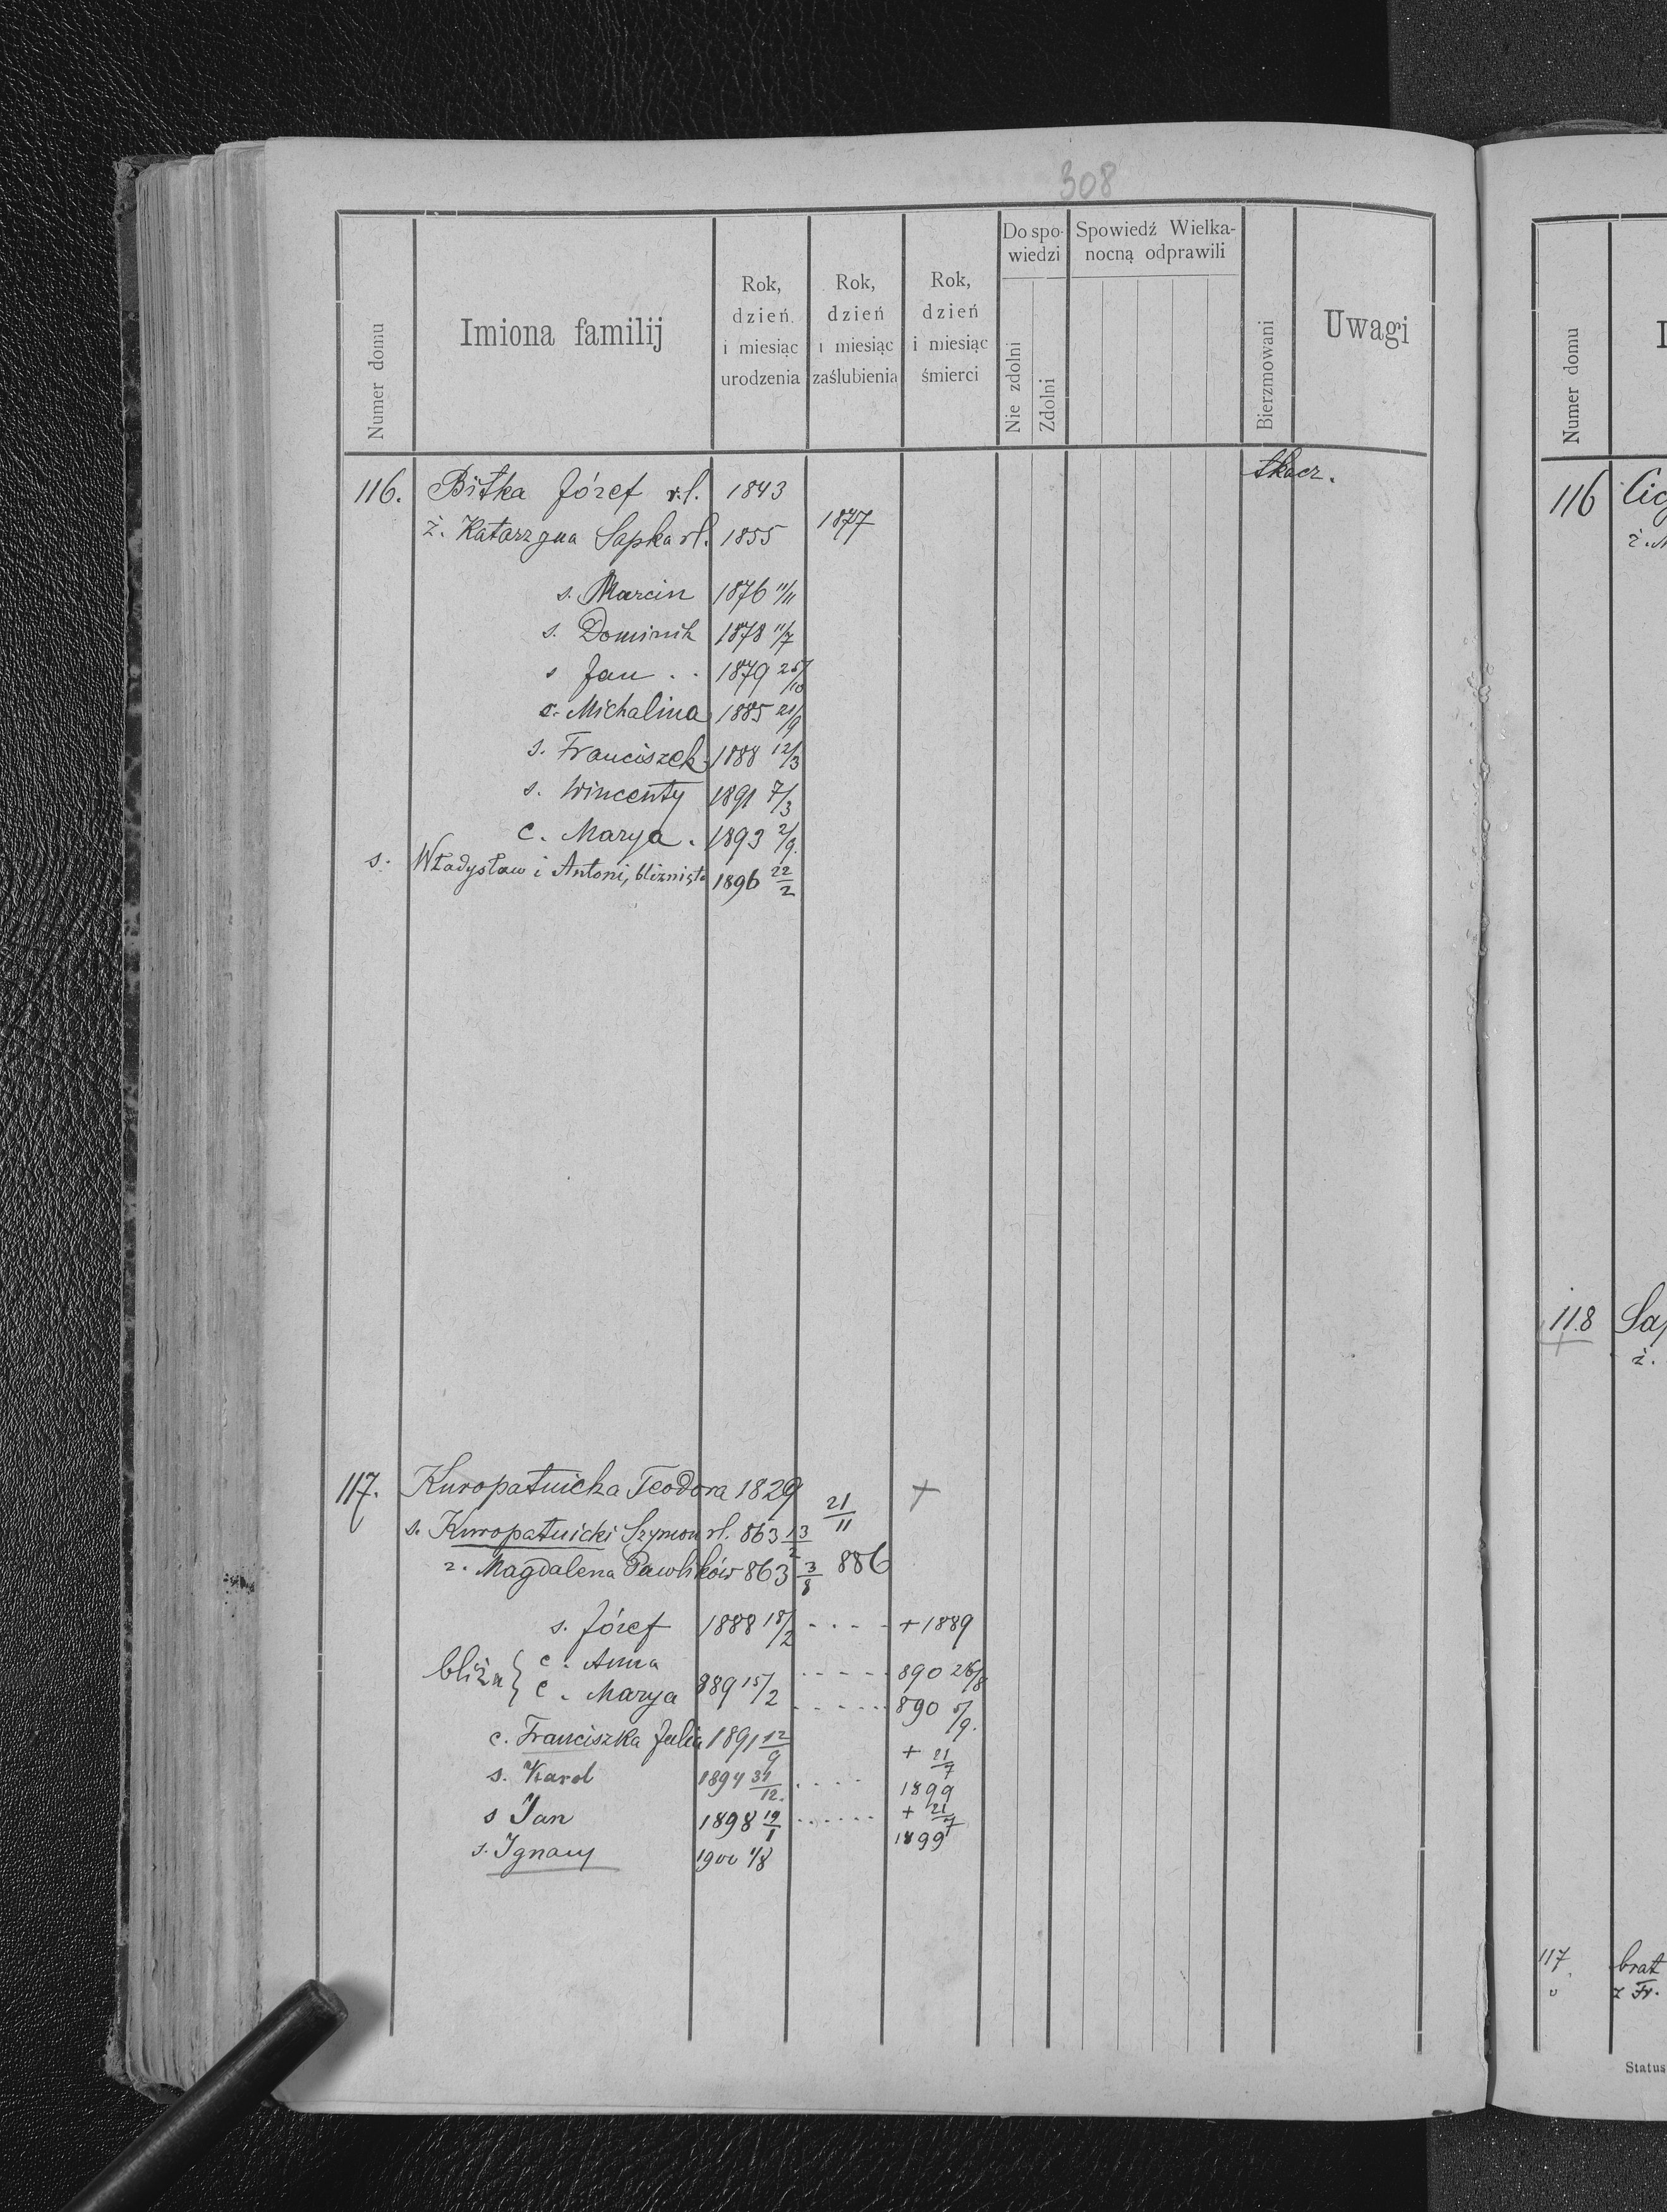 308
Numer domu
Imiona familij
Rok, dzień i miesiąc urodzenia
Rok, dzień i miesiąc zaślubienia
Rok, dzień i miesiąc śmierci
Do spo-
wiedzi
Nie zdolni
Zdolni
Spowiedź Wielka-
nocną odprawili
Bierzmowani
Uwagi
116. Bitka Józef r.l. 1843 tkacz.
ż. Katarzyna Sapka rl. 1855 1877
s. Marcin 1876 11/11
s. Dominik 1878 11/7
s Jan . . 1879 25/10
c. Michalina 1885 21/9
s. Franciszek 1888 12/3
s. Wincenty 1891 7/3
c. Marya . 1893 2/9.
s. Władysław i Antoni, bliznięta 1896 22/2
117. Kuropatnicka Teodora 1829 +
s. Kuropatnicki Szymon rl. 863 13/2 21/11
ż. Magdalena Pawlików 863 3/8 886
s. Józef 1888 18/2 - . - - + 1889
bliźn { c. Anna - - - - - 890 26/8
c. Marya 889 15/2 - - - - - 890 5/9.
c. Franciszka Julia 1891 12/9
s. Karol 1894 31/12. . - - - + 21/7 1899
s Jan 1898 19/1 - - - - - - + 21/7 1899
s. Ignacy 1900 1/8
Numer domu
116
ż.
118
ż.
117 brat
" z Fr.
Status